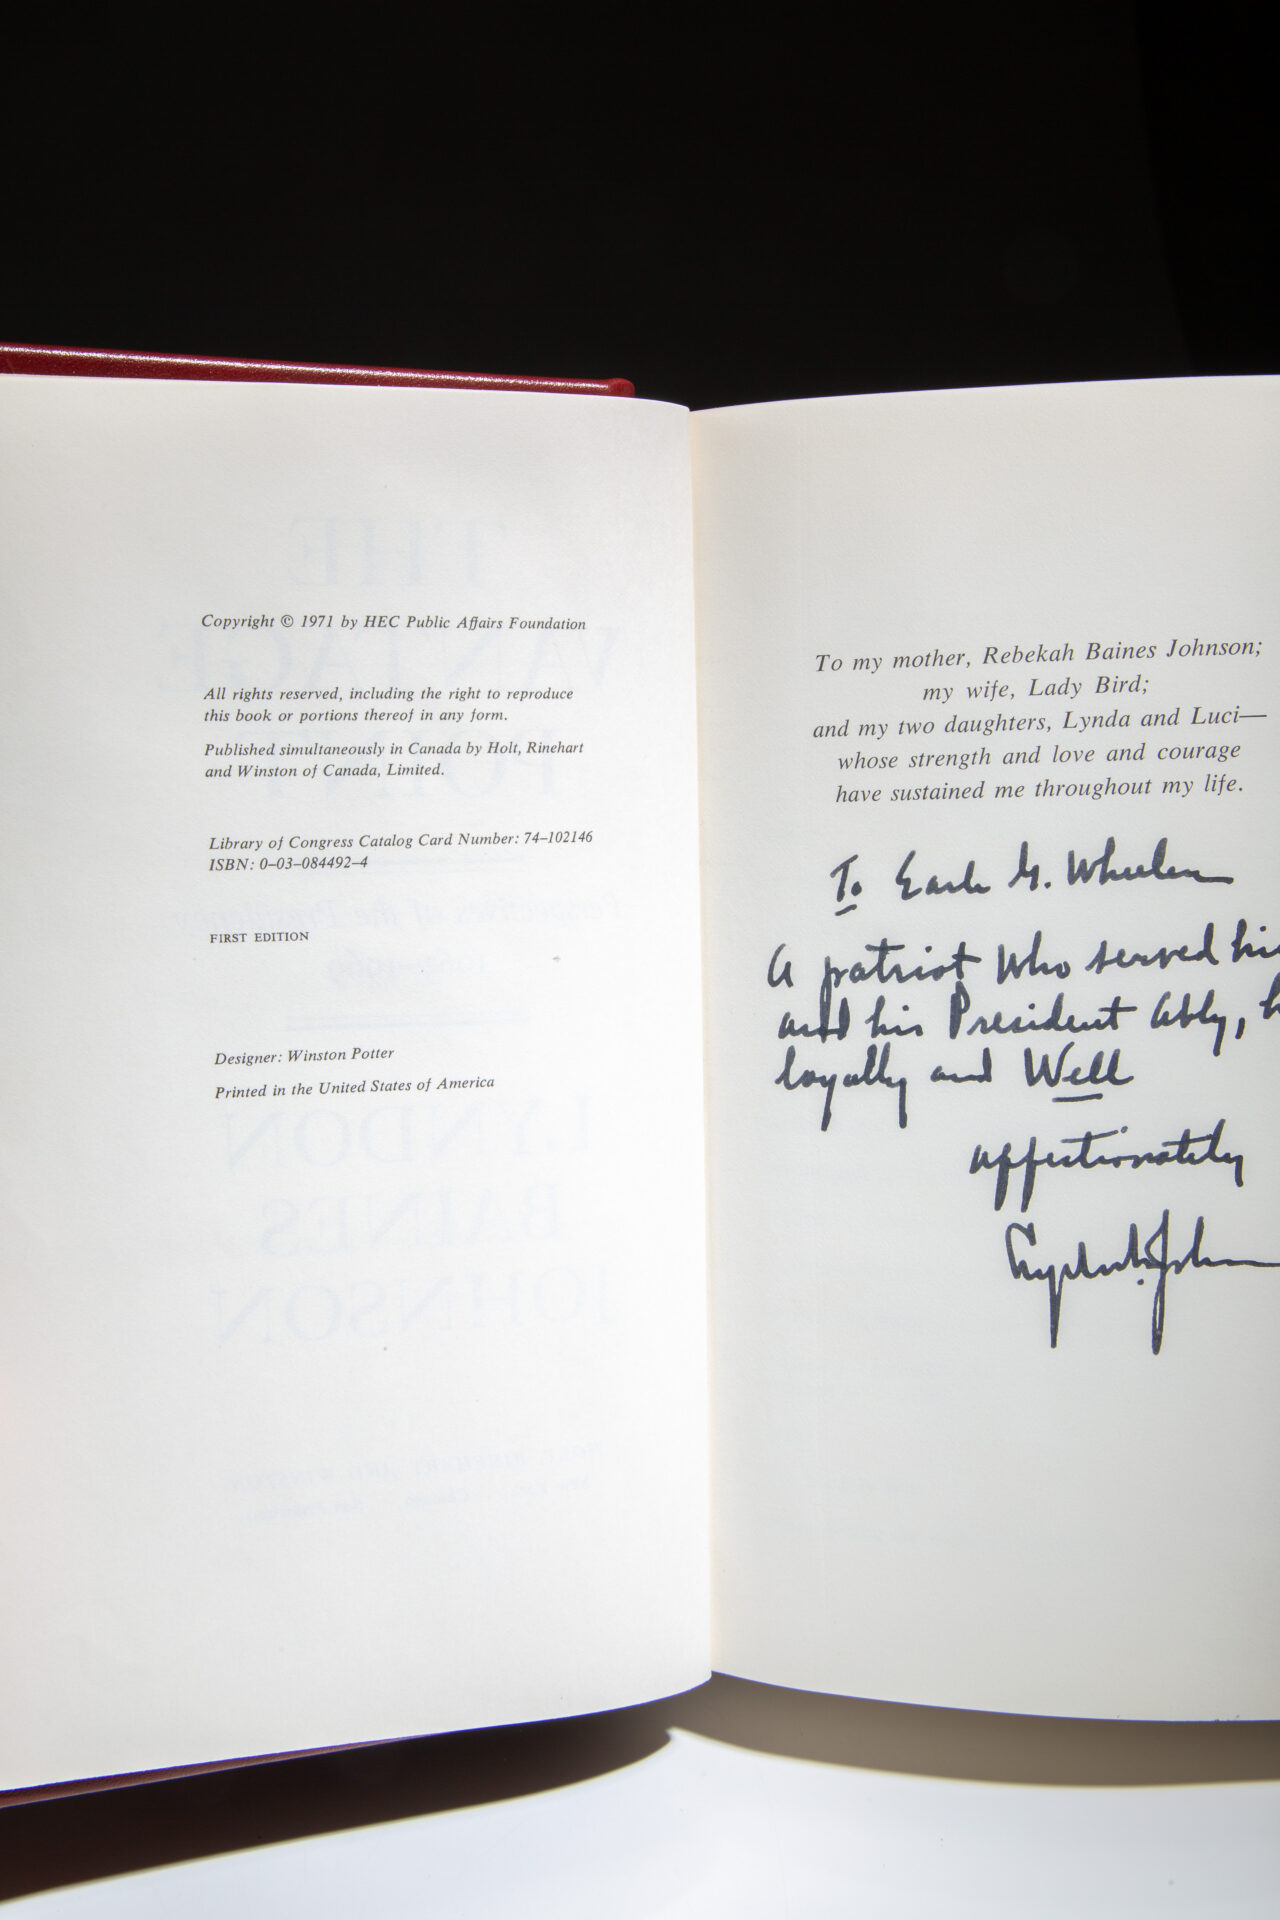 Copyright © 1971 by HEC Public Affairs Foundation
All rights reserved, including the right to reproduce
this book or portions thereof in any form.
Published simultaneously in Canada by Holt, Rinehart
and Winston of Canada, Limited.
Library of Congress Catalog Card Number: 74–102146
ISBN: 0–03–084492–4
FIRST EDITION
Designer: Winston Potter
Printed in the United States of America
To my mother, Rebekah Baines Johnson;
my wife, Lady Bird;
and my two daughters, Lynda and Luci—
whose strength and love and courage
have sustained me throughout my life.
To Earle G. Wheeler
A patriot who served his
and his President Ably,
loyally and Well
affectionately
Lyndon B. Johnson